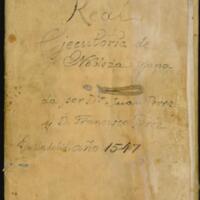 Real
Ejecutoria de
Nobleza gana
da por Dn Juan Perez
y D. Francisco Perez
año 1547